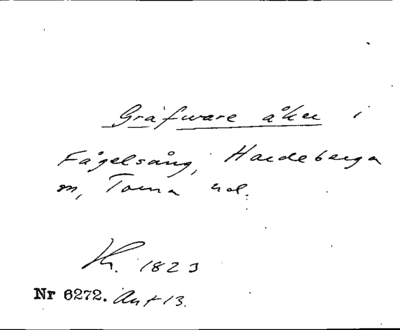 Gräfware åker i
Fågelsång, Hardeberga
sn, Torna hd.
K. 1823
Nr 6272. Ant 13.